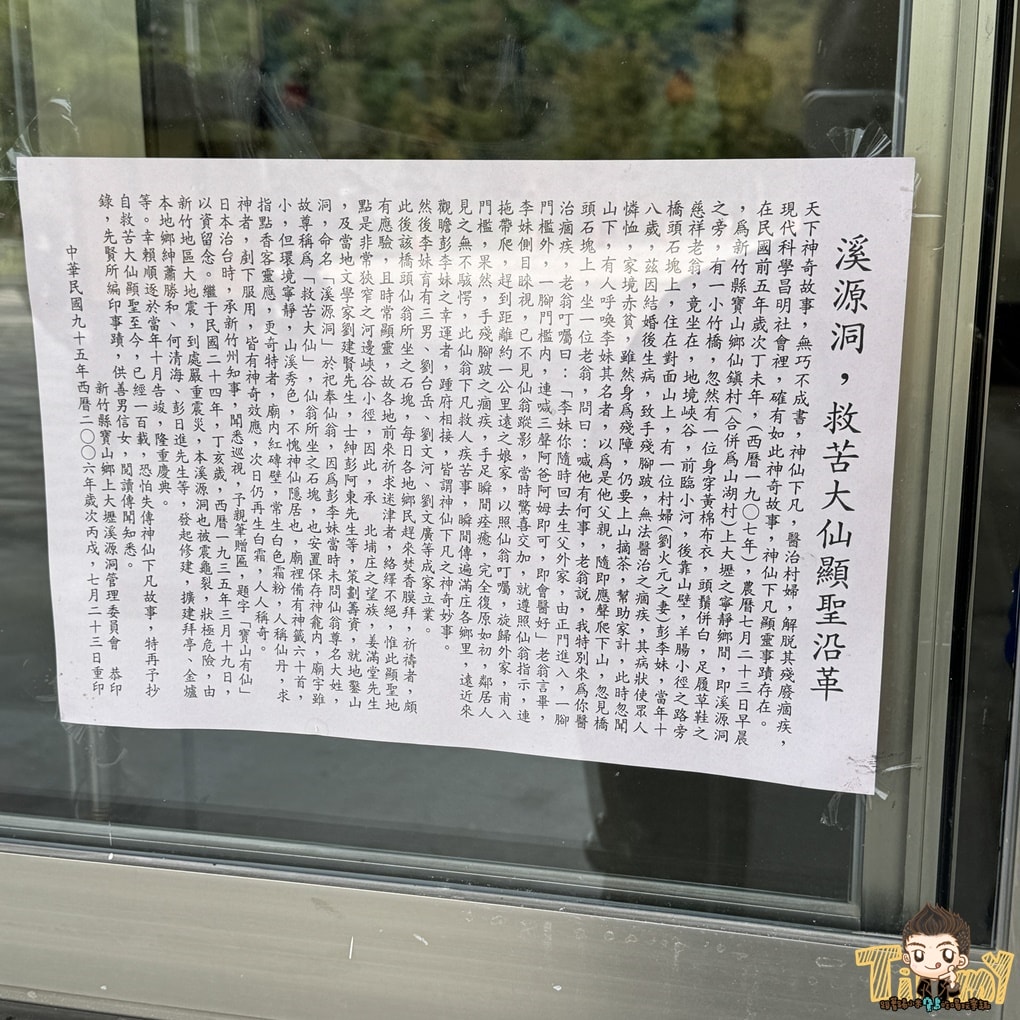 溪源洞，救苦大仙顯聖沿革
天下神奇故事，無巧不成書，神仙下凡，醫治村婦，解脫其殘廢痼疾，
現代科學昌明社會裡，確有如此神奇故事，神仙下凡顯靈事蹟存在。
在民國前五年歲次丁未年，(西曆一九〇七年)農曆七月二十三日早晨
，為新竹縣寶山鄉仙鎮村(合併為山湖村)上大壢之寧靜鄉間，即溪源洞
之旁，有一小竹橋，忽然有一位身穿黃棉布衣，頭鬚併白，足履草鞋之
慈祥老翁，竟坐在，地境峽谷，前臨小河，後靠山壁，羊腸小徑之路旁
橋頭石塊上，住在對面山上，有一位村婦(劉火元之妻)彭李妹，當年十
八歲，茲因結婚後生病，致手殘腳跛，無法醫治之痼疾，其病狀使眾人
憐恤，家境赤貧，雖然身為殘障，仍要上山摘茶，幫助家計，此時忽聞
山下，有人呼喚李妹其名者，以為是他父親，隨即應聲爬下山，忽見橋
頭石塊上，坐一位老翁，問曰：喊他有何事，老翁說，我特別來為你醫
治痼疾，老翁叮囑曰：「李妹你隨時回去生父外家，由正門進入，一腳
門檻外，一腳門檻內，連喊三聲阿爸阿姆即可，即會醫好」老翁言畢，
李妹側目睞視，已不見仙翁蹤影，當時驚喜交加，就遵照仙翁指示，連
拖帶爬，趕到距離約一公里遠之娘家，以照仙翁叮囑，旋歸外家，甫入
門檻，果然，手殘腳跛之痼疾，手足瞬間痊癒，完全復原如初，鄰居人
見之無不駭愕，此仙翁下凡救人疾苦事，瞬間傳遍滿庄各鄉里，遠近來
觀瞻彭李妹之幸運者，踵府相接，皆謂神仙下凡之神奇妙事。
然後李妹育有三男、劉台岳、劉文河、劉文廣等成家立業。
此後該橋頭仙翁所坐之石塊，每日各地鄉民趕來焚香膜拜，祈禱者，頗
有應驗，且時常顯靈，故各地前來祈求迷津者，絡繹不絕，惟此顯聖地
點是非常狹窄之河邊峽谷小徑，因此，承　北埔庄之望族，姜滿堂先生
，及當地文學家劉建賢先生，士紳彭阿東先生等，策劃籌資，就地鑿山
洞，命名「溪源洞」於祀奉仙翁，因為彭李妹當時未問仙翁尊名大姓，
故尊稱為「救苦大仙」，仙翁所坐之石塊，也安置保存神龕內，廟宇雖
小，但環境寧靜，山溪秀色，不愧神仙隱居也，廟裡備有神籤六十首，
指點香客靈應，更奇特者，廟內紅磚壁，常生白色霜粉，人稱仙丹，求
神者，刮下服用，皆有神奇效應，次日仍再生白霜，人人稱奇。
日本治台時，承新竹州知事，聞悉巡視，子親筆贈匾，題字「寶山有仙」
以資留念。繼于民國二十四年，丁亥歲，西曆一九三五年三月十九日，
新竹地區大地震，到處嚴重震災，本溪源洞也被震龜裂，狀極危險，由
本地鄉紳蕭勝和、何清海、彭日進先生等，發起修建，擴建拜亭、金爐
等。幸賴順逐於當年十月告竣，隆重慶典。
自救苦大仙顯聖至今，已經一百載，恐怕失傳神仙下凡故事，特再子抄
錄，先賢所編印事蹟，供善男信女，閱讀傳聞知悉。
新竹縣寶山鄉上大壢溪源洞管理委員會　恭印
中華民國九十五年西曆二〇〇六年歲次丙戌，七月二十三日重印
Timmy